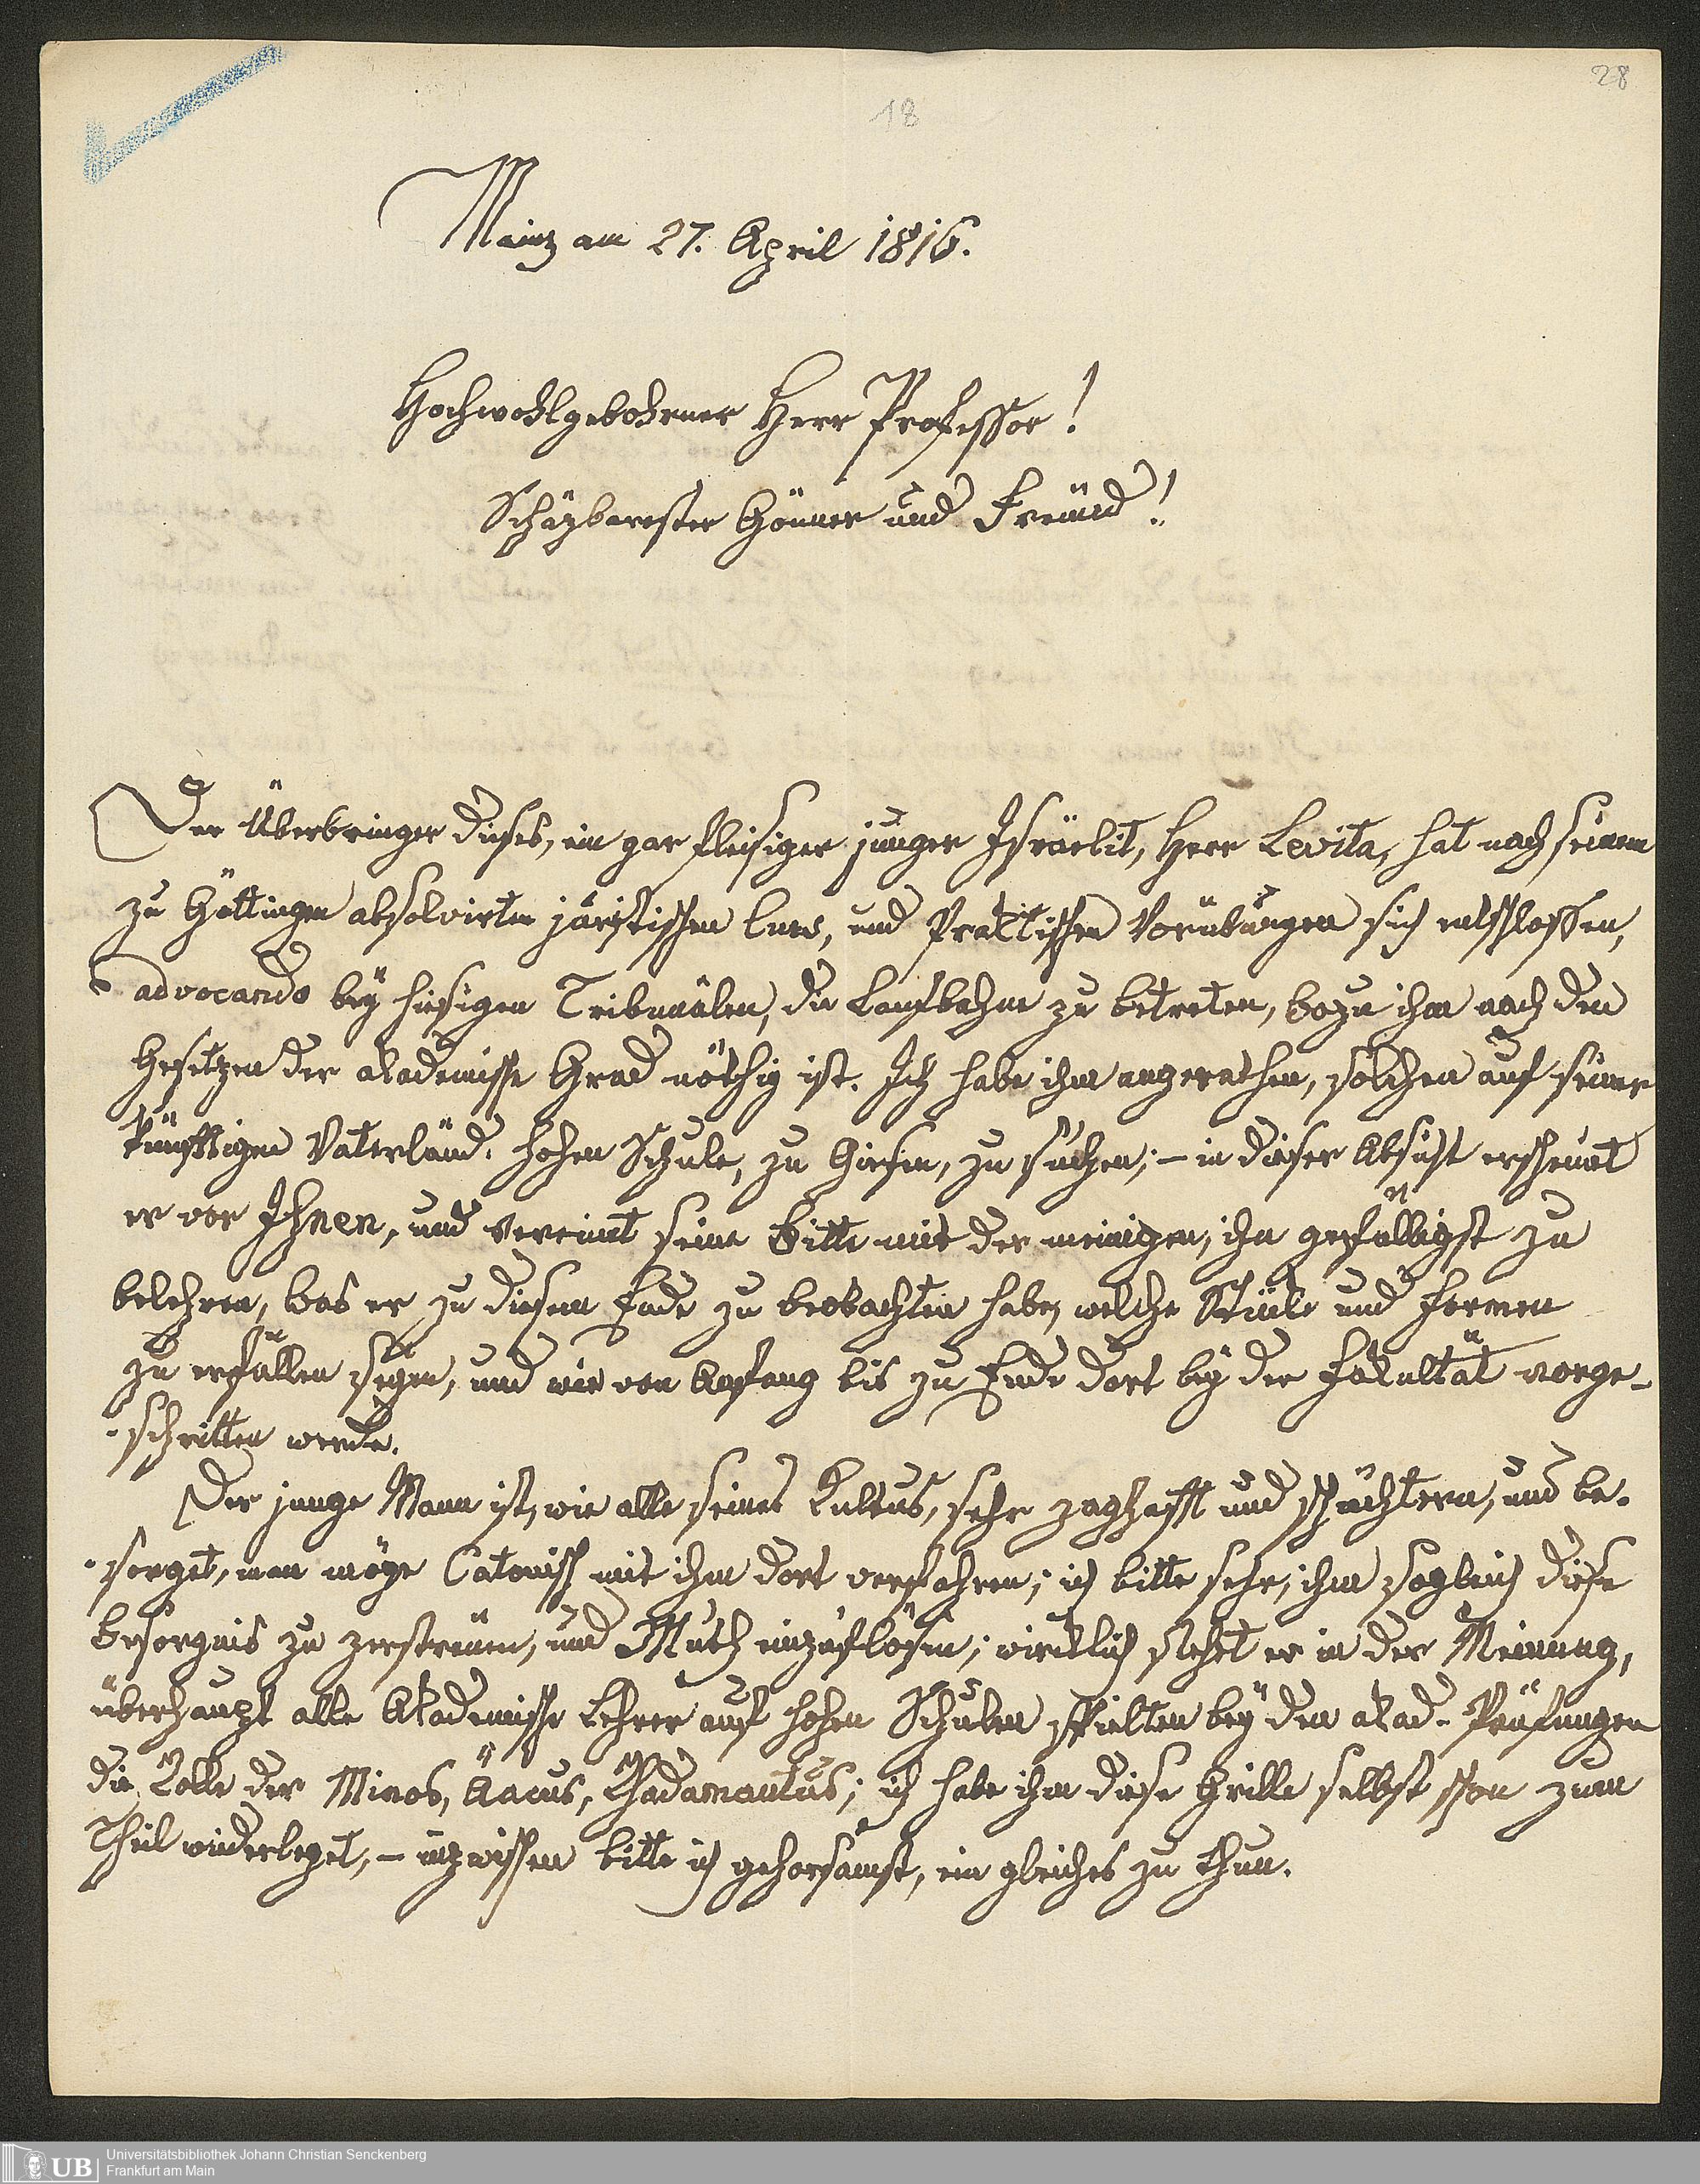 28
18
Mainz am 27. April 1816.
Hochwohlgebohrner Herr Professor!
Schäzbarester Gönner und Freund!
Der Überbringer dieses, ein gar fleisiger junger Israelit, Herr Levita, hat nach seinem
zu Göttingen absolvirten juristischen Curs, und Praktischen Vorübungen sich entschlossen,
advocando bey hiesigen Tribunälen, die Laufbahn zu betreten, wozu ihm nach den
Gesetzen der akademische Grad nöthig ist. Ich habe ihm angerathen, solchen auf seiner
künfftigen Vaterländ. hohen Schule, zu Giesen, zu suchen; – in dieser Absicht erscheint
er vor Ihnen, und vereint seine Bitte mit der meinigen, ihn gefälligst zu
belehren, was er zu diesem Ende zu beobachten habe, welche Stücke und Formen
zu erfüllen seyen, und wie von Anfang bis zu Ende dort bey der Fakultät vorge-
-schritten werde.
Der junge Mann ist, wie alle seines Kultus, sehr zaghafft und schüchtern, und be-
-sorget, man möge Catonisch mit ihm dort verfahren; ich bitte sehr, ihm sogleich diese
Besorgnis zu zerstreuen, und Muth einzuflösen; wircklich stehet er in der Meinung,
überhaupt alle Akademische Lehrer auf hohen Schulen spielten bey den akad. Prüfungen
die Rolle der Minos, Äacus, Rhadamantus; ich habe ihm diese Grille selbst schon zum
Theil wiederleget, – inzwischen bitte ich gehorsamst, ein gleiches zu thun.
UB
Universitätsbibliothek Johann Christian Senckenberg
Frankfurt am Main